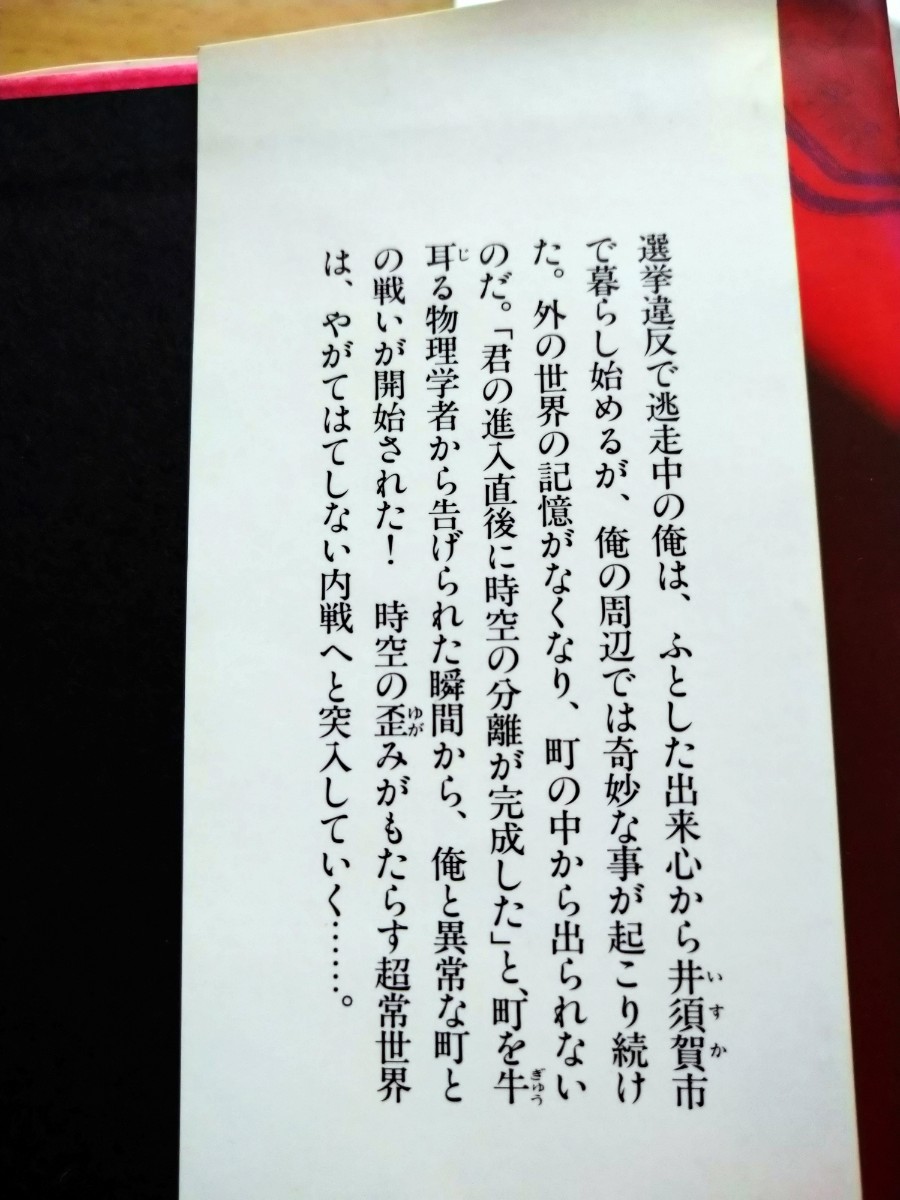 選挙違反で逃走中の俺は、ふとした出来心から井須賀市
で暮らし始めるが、俺の周辺では奇妙な事が起こり続け
た。外の世界の記憶がなくなり、町の中から出られない
のだ。「君の進入直後に時空の分離が完成した」と、町を牛
耳る物理学者から告げられた瞬間から、俺と異常な町と
の戦いが開始された！　時空の歪みがもたらす超常世界
は、やがてはてしない内戦へと突入していく……。